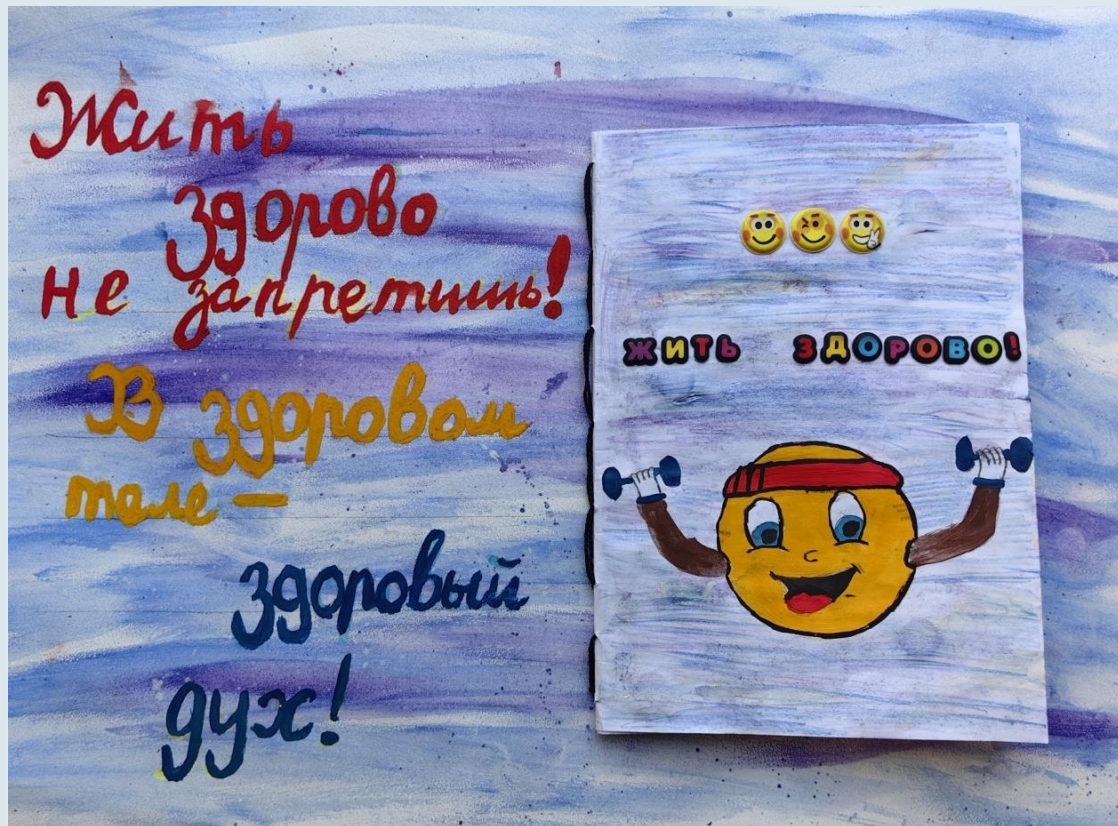 Жить
здорово
не запретишь!
В здоровом
теле —
здоровый
дух!
ЖИТЬ ЗДОРОВО!